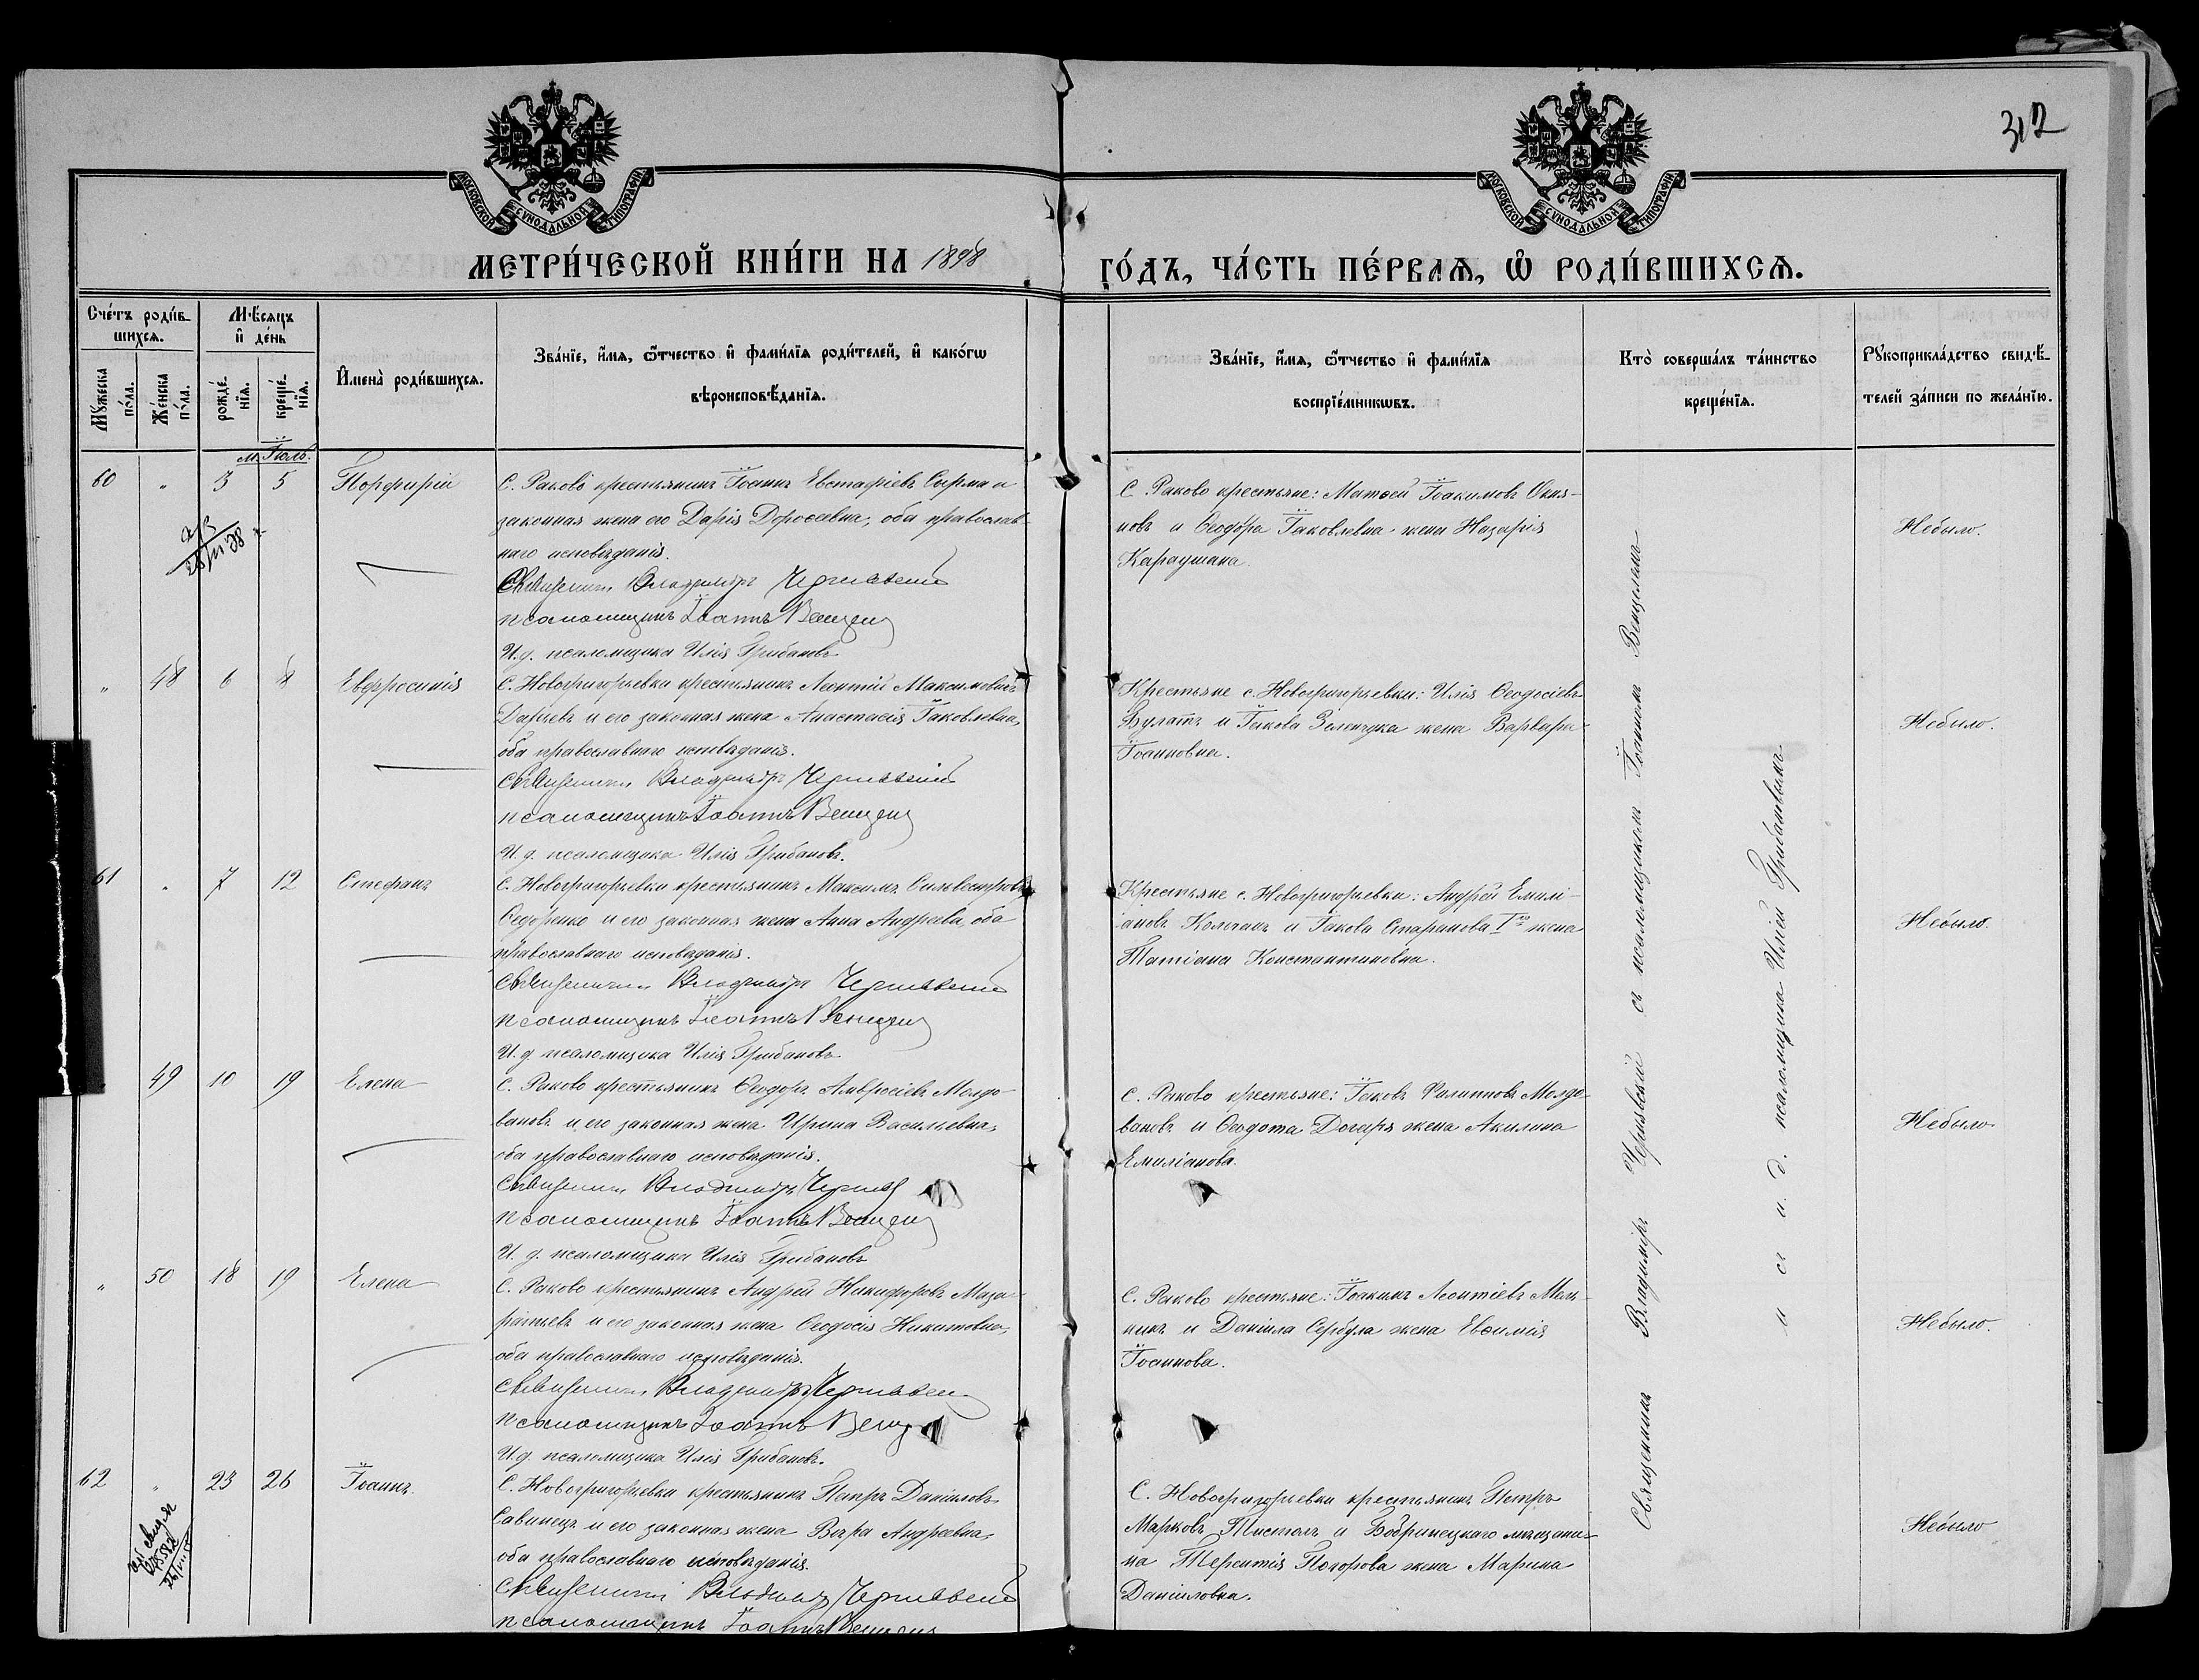 312
МОСКОВСКОЙ СѴНОДАЛЬНОЙ ТИПОГРАФІИ
МОСКОВСКОЙ СѴНОДАЛЬНОЙ ТИПОГРАФІИ
МЕТРИ́ЧЕСКОЙ КНИ́ГИ НА 1898
ГО́ДЪ, ЧА́СТЬ ПЕ́РВАѦ, Ѡ҆ РОДИ́ВШИХСѦ.
Сче́тъ роди́в-
шихсѧ.
Мꙋ́жеска по́ла.
Же́нска по́ла.
Мѣ́сяцъ
и҆ де́нь
рожде́-
нїѧ.
креще́-
нїѧ.
И҆мена̀ роди́вшихсѧ.
Зва́нїе, и҆́мѧ, ѻ҆́тчество и҆ фами́лїѧ роди́телей, и҆ како́гѡ
вѣроисповѣ́данїѧ.
Зва́нїе, и҆́мѧ, ѻ҆́тчество и҆ фами́лїѧ
воспрїе́мникѡвъ.
Кто̀ соверша́лъ та́инство
креще́нїѧ.
Рꙋкоприкла́дство свидѣ́-
телей за́писи по жела́нїю.
м. Іюль.
60 " 3 5 Порфирій
С. Раково крестьянинъ Іоаннъ Евстафіевъ Сырма и
законная жена его Дарія Доросеевна, оба православ-
наго исповѣданія.
Священникъ Владиміръ Чернявскій
псаломщикъ Іоаннъ Венцел
И. д. псаломщика Илія Грибановъ
С. Раково крестьяне: Матѳей Іоакимовъ Окя-
новъ и Ѳеодора Іаковлевна жена Назарія
Караушана.
Небыло.
" 48 6 Евфросинія
С. Новогригорьевки крестьянинъ Леонтій Максимовъ
и его законная жена Анастасія Іаковлевна,
оба православнаго исповѣданія.
Священникъ Владиміръ Чернявскій
псаломщикъ Іоаннъ Венцел
И. д. псаломщика Илія Грибановъ.
Крестьяне с. Новогригорьевки: Илія Ѳеодосіевъ
Булатъ и Іакова Зеленчука жена Варвара
Іоанновна.
Небыло.
61 " 7 12 Стефанъ
С. Новогригорьевки крестьянинъ Максимъ Сильвестровъ
Ѳедоренко и его законная жена Анна Андреева, оба
православнаго исповѣданія.
Священникъ Владиміръ Чернявскій
псаломщикъ Іоаннъ Венцел
И. д. псаломщика Илія Грибановъ
Крестьяне с. Новогригорьевки: Андрей Емилі-
ановъ Колчанъ и Іакова Старанова Iго жена
Татіана Константиновна.
Небыло.
49 10 19 Елена
С. Раково крестьянинъ Ѳеодоръ Амвросіевъ Молдо-
вановъ и его законная жена Ирина Васильевна,
оба православнаго исповѣданія.
Священникъ Владиміръ Черняв
псаломщикъ Іоаннъ Венцел
И. д. псаломщика Илія Грибановъ
С. Раково крестьяне: Іаковъ Филипповъ Молдо-
вановъ и Ѳеодота Догаря жена Акилина
Емиліанова.
Небыло.
" 50 18 19 Елена
С. Раково крестьянинъ Андрей Никифоровъ Маза-
ратьевъ и его законная жена Ѳеодосія Никитовна,
оба православнаго исповѣданія.
Священникъ Владиміръ Чернявск
псаломщикъ Іоаннъ Венц
И. д. псаломщика Илія Грибановъ.
С. Раково крестьяне: Іоакимъ Леонтіевъ Мель-
никъ и Даніила Сербула жена Евѳимія
Іоаннова.
Небыло.
62 " 23 26 Іоаннъ.
С. Новогригорьевки крестьянинъ Петръ Даниловъ
Савинецъ и его законная жена Вѣра Андреевна,
оба православнаго исповѣданія.
Священникъ Владиміръ Чернявскій
псаломщикъ Іоаннъ Венцел
С. Новогригорьевки крестьянинъ Петръ
Марковъ Пистолъ и Бобринецкаго мѣщани-
на Терентія Погорова жена Марина
Даниловна.
Небыло
Священникъ Владиміръ Чернявскій съ псаломщикомъ Іоанномъ Венцелемъ
и съ и. д. псаломщика Иліей Грибановымъ.